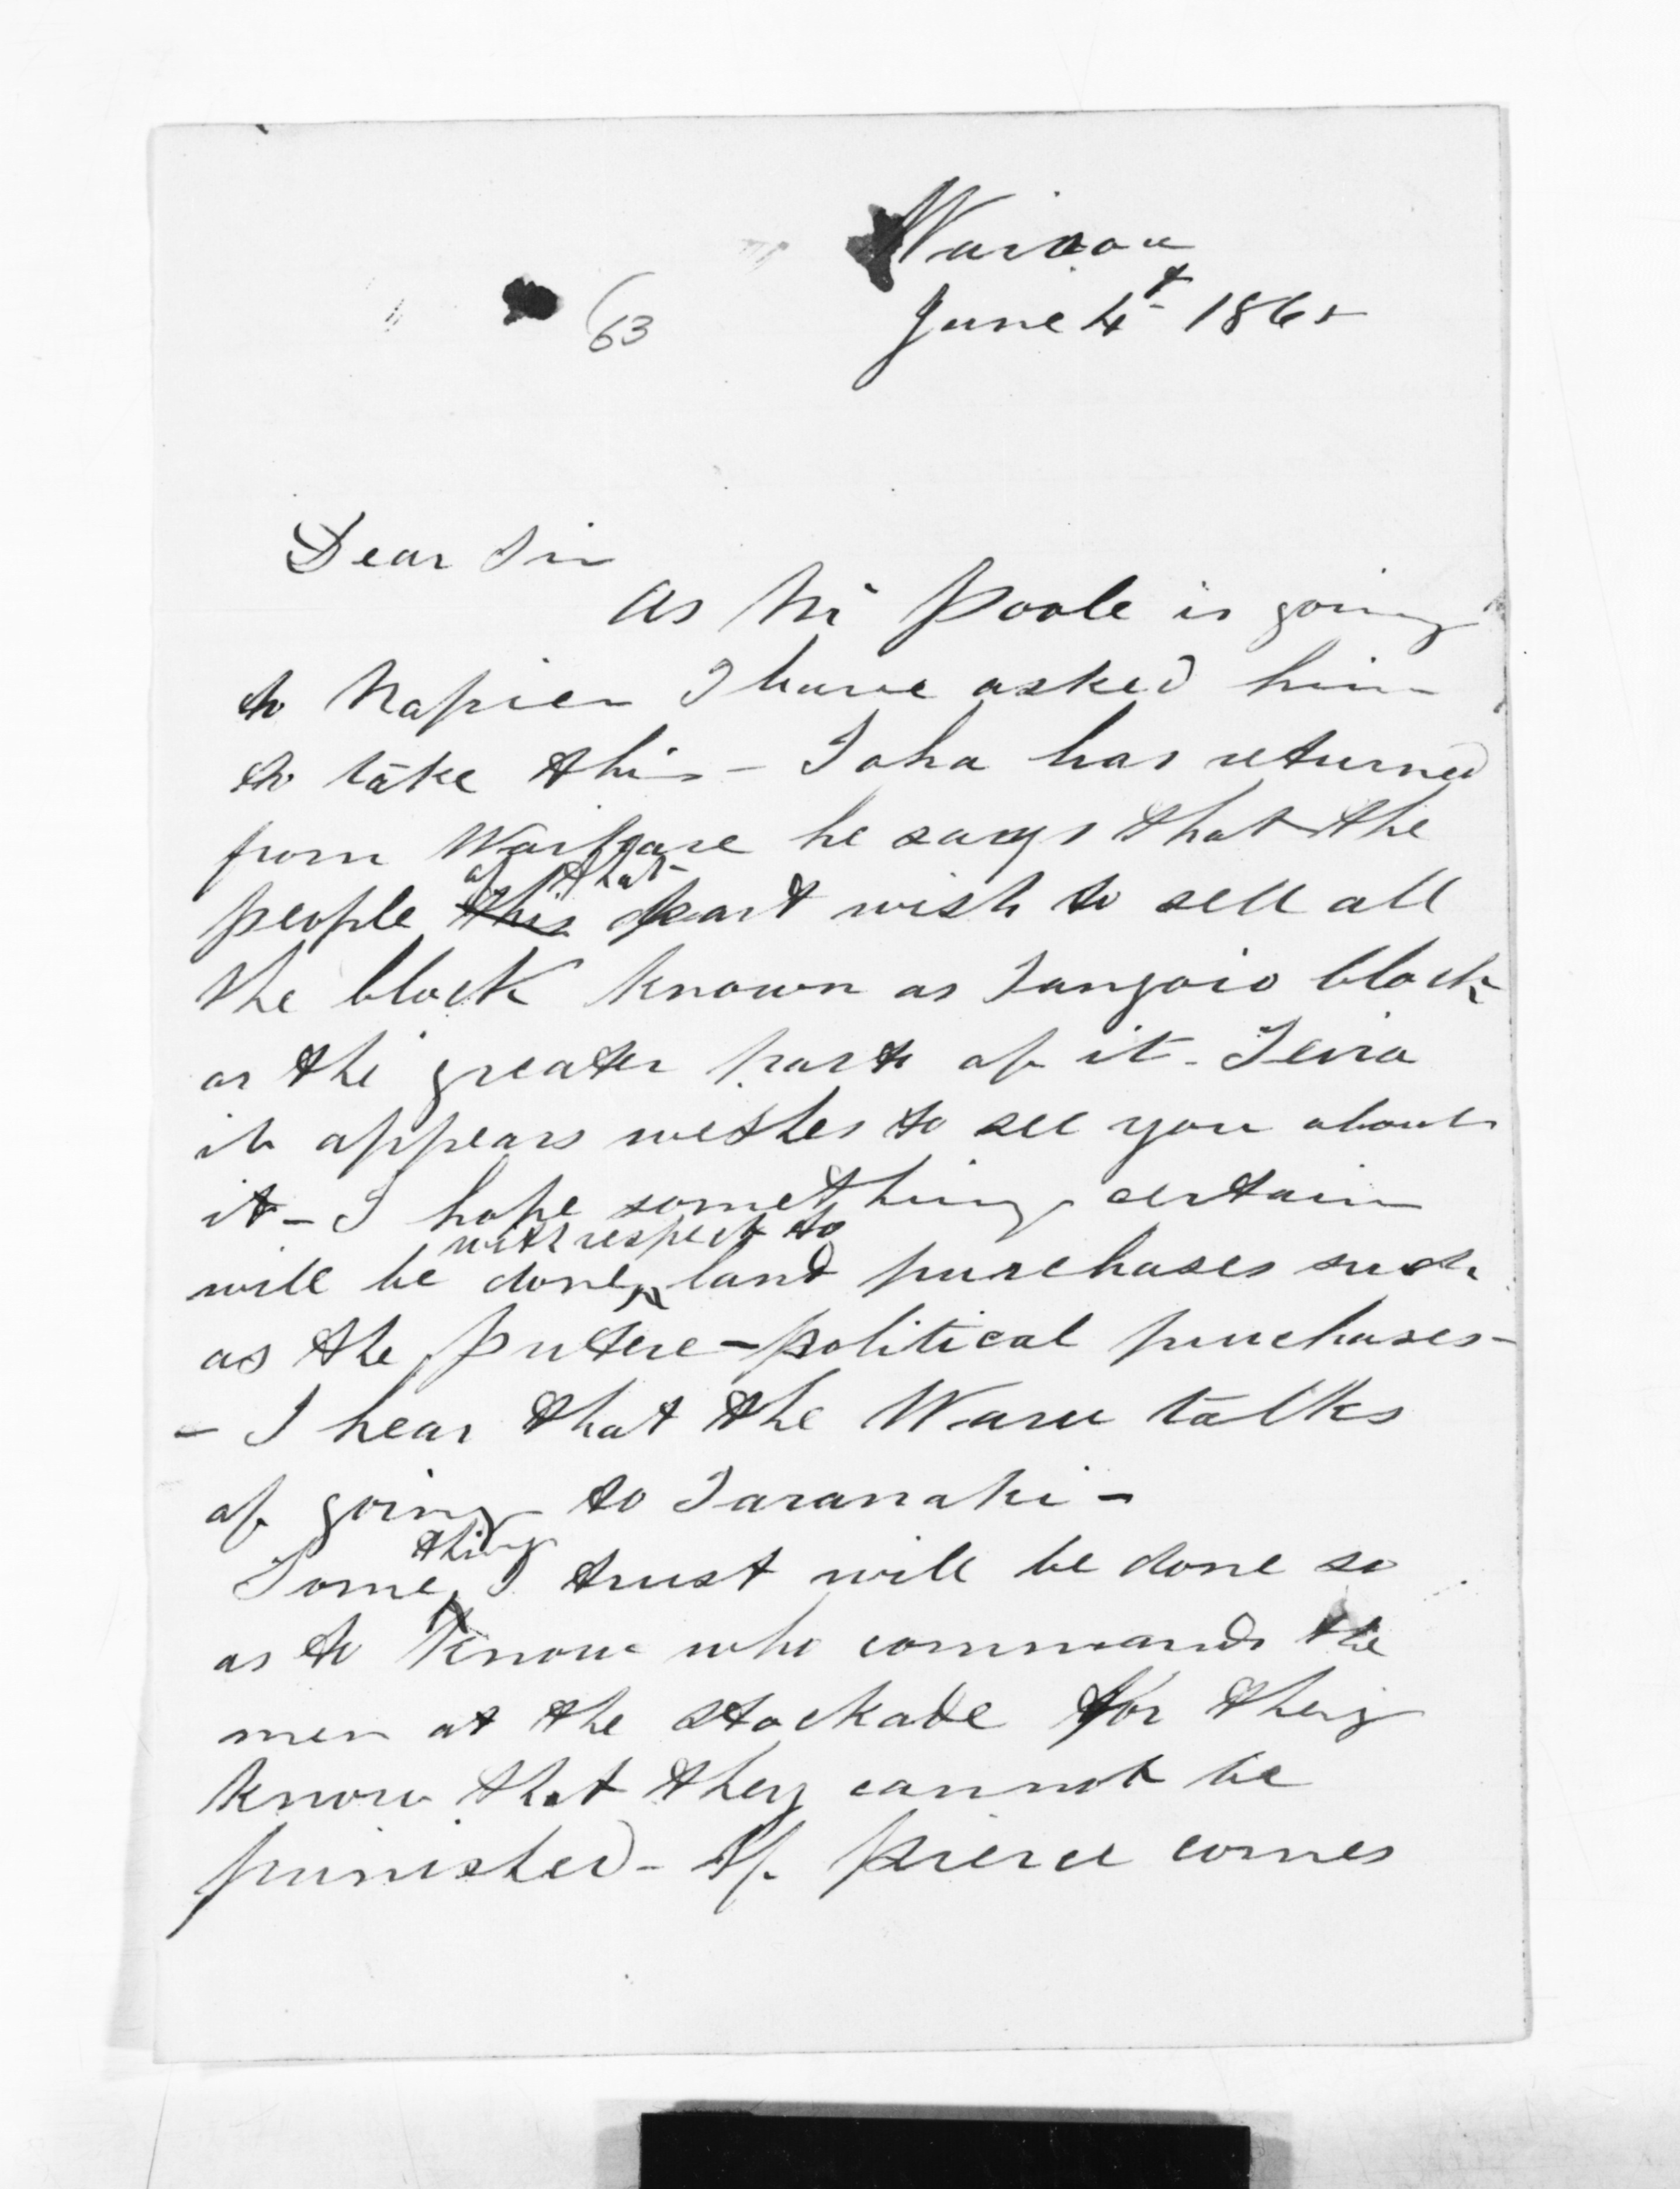 Wairoa
June 4th 1865
63
Dear Sir
As Mr Poole is going
to Napier I have asked him
to take this - Toha has returned
from Waipare he says that the
of that
people this part wish to sell all
the block known as Tangoio block
or the greater part of it - Teira
it appears wishes to see you about
it - I hope something certain
with respect to
will be done land purchases such
as the Putere - political purchases -
- I hear that the Waru talks
of going to Taranaki -
thing
Some I trust will be done so
as to know who commands the
men at the stockade for they
know that they cannot be
punished - If Pierce comes